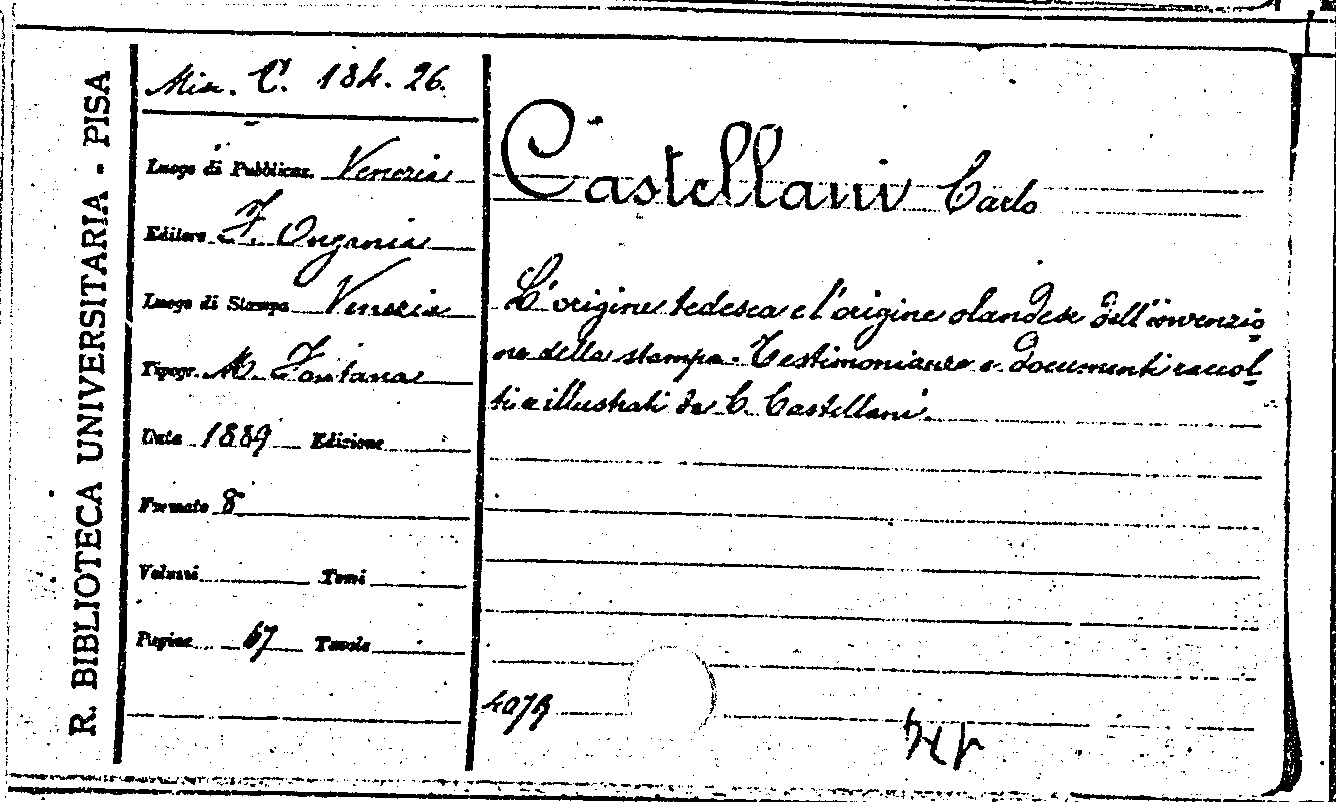 R. BIBLIOTECA UNIVERSITARIA - PISA
Misc. C. 184. 26.
Luogo di Pubblicaz. Venezia
Editore F. Ongania
Luogo di Stampa Venezia
Tipogr. M. Fontana
Data 1889 Edizione
Formato 8
Volumi Tomi
Pagine 67 Tavole
Castellani Carlo
L'origine tedesca e l'origine olandese dell'invenzio-
ne della stampa. Testimonianze e documenti raccol-
ti e illustrati da C. Castellani
4079